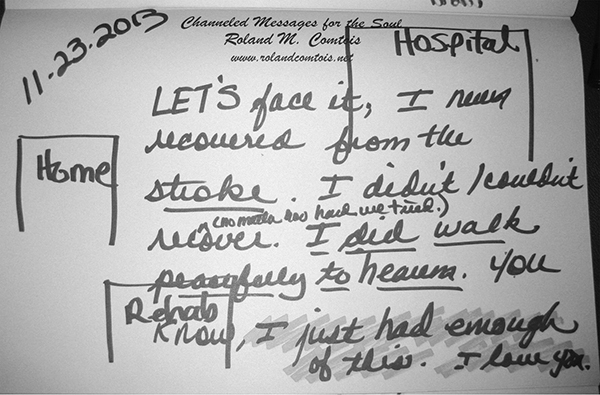 11.23.2013
Channeled Messages for the Soul
Roland M. Comtois
www.rolandcomtois.net
Hospital
LET'S face it, I never
recovered from the
Home
stroke. I didn't/couldn't
(no matter how hard we tried.)
recover. I did walk
peacefully to heaven. You
Rehab
know, I just had enough
of this. I love you.